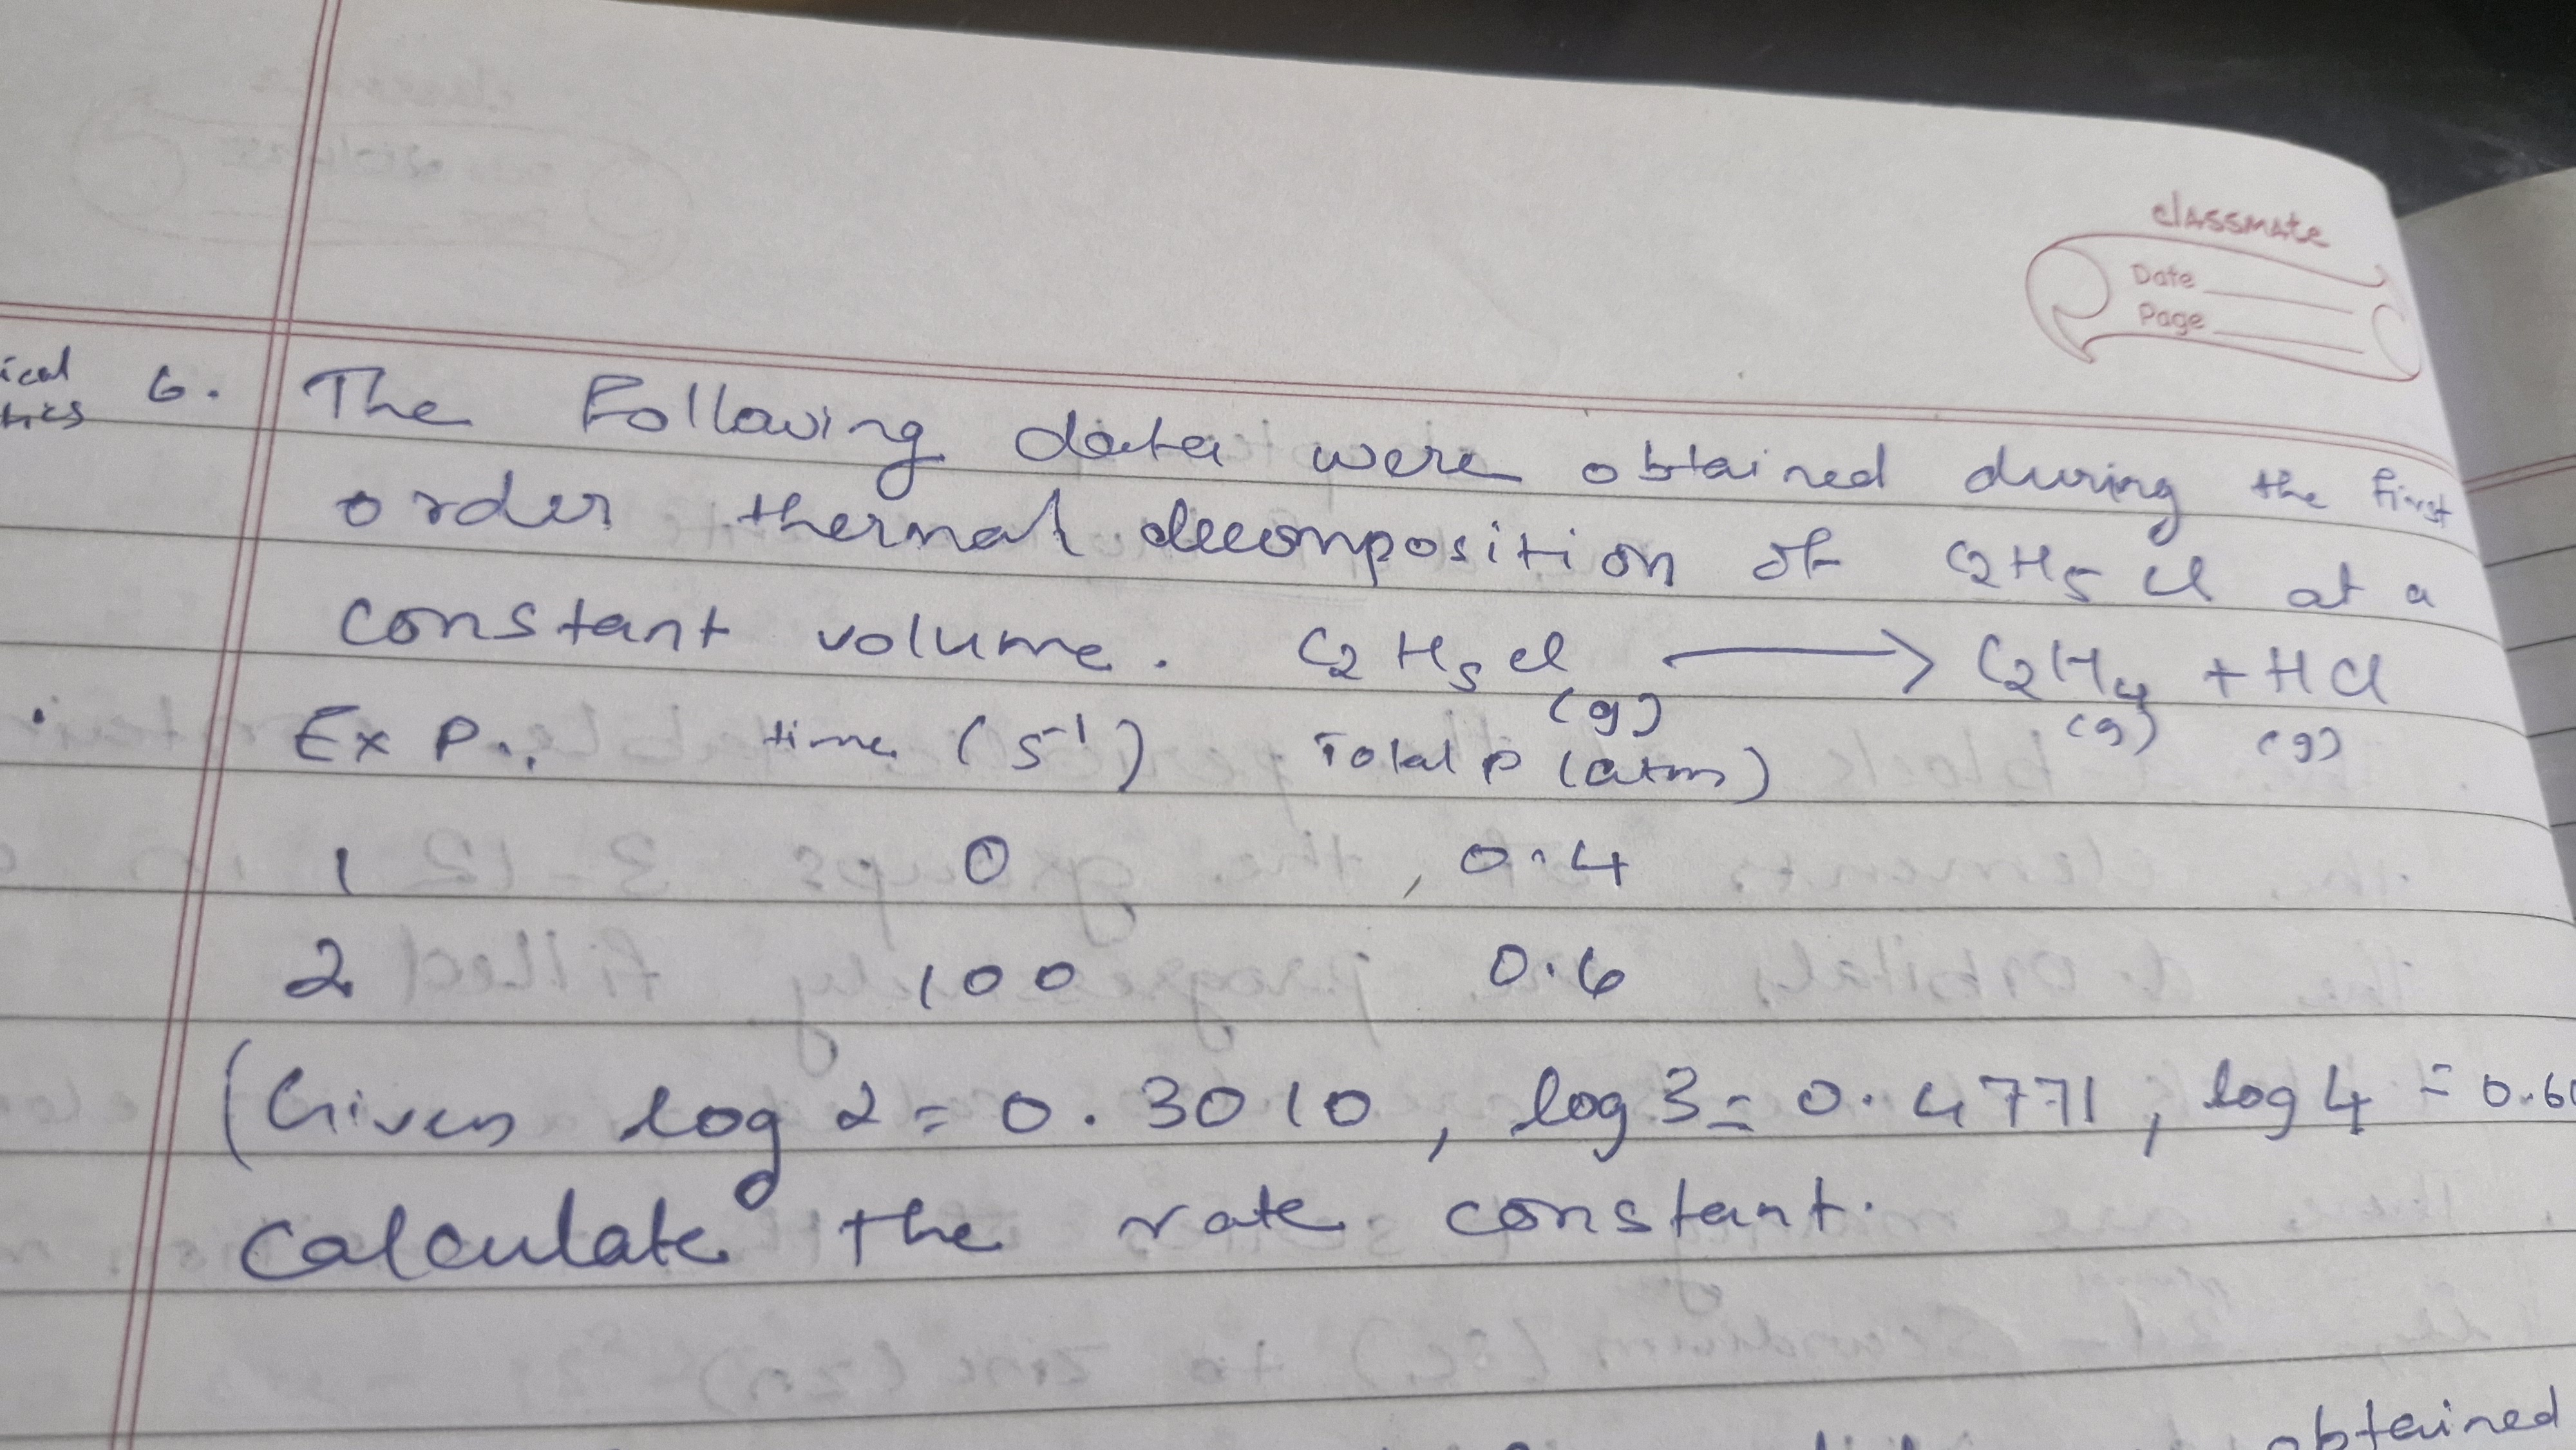 classmate
Date
Page
6. The Following data were obtained during the first
order thermal decomposition of C2H5Cl at a
constant volume. C2H5Cl (g) ⟶ C2H4 (g) + HCl (g)
Exp., time (s-1) Total P (atm)
1 0 0.4
2 100 0.6
(Given log 2 = 0.3010, log 3 = 0.4771, log 4 = 0.60
Calculate the rate constant.
obtained